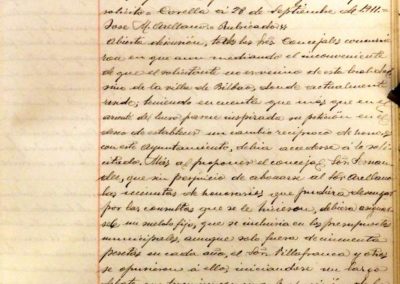 solicito. Corella á 28 de Septiembre de 1911.=
José M. Arellano = Rubricado ==
Abierta discusión, todos los Sres Concejales convini-
eron en que aun mediando el inconveniente
de que el solicitante no es vecino de esta localidad
sino de la villa de Bilbao, donde actualmente
reside; teniendo en cuenta que más que en el
de lucro parece inspirada su petición en el
deseo de establecer un cambio recíproco de
con este Ayuntamiento, debía accederse á lo so-
licitado. Mas al proponer el concejal Sor Fernan-
dez, que sin perjuicio de abonarse al Sor Arellano
las minutas de honorarios que pudiera devengar
por las consultas que se le hicieran, debiera asignar-
sele un sueldo fijo, que se incluiría en los presupuestos
municipales, aunque solo fuera de cincuenta
pesetas en cada año, el Sor Villafranca y otros
se opusieron á ello, iniciandose un largo